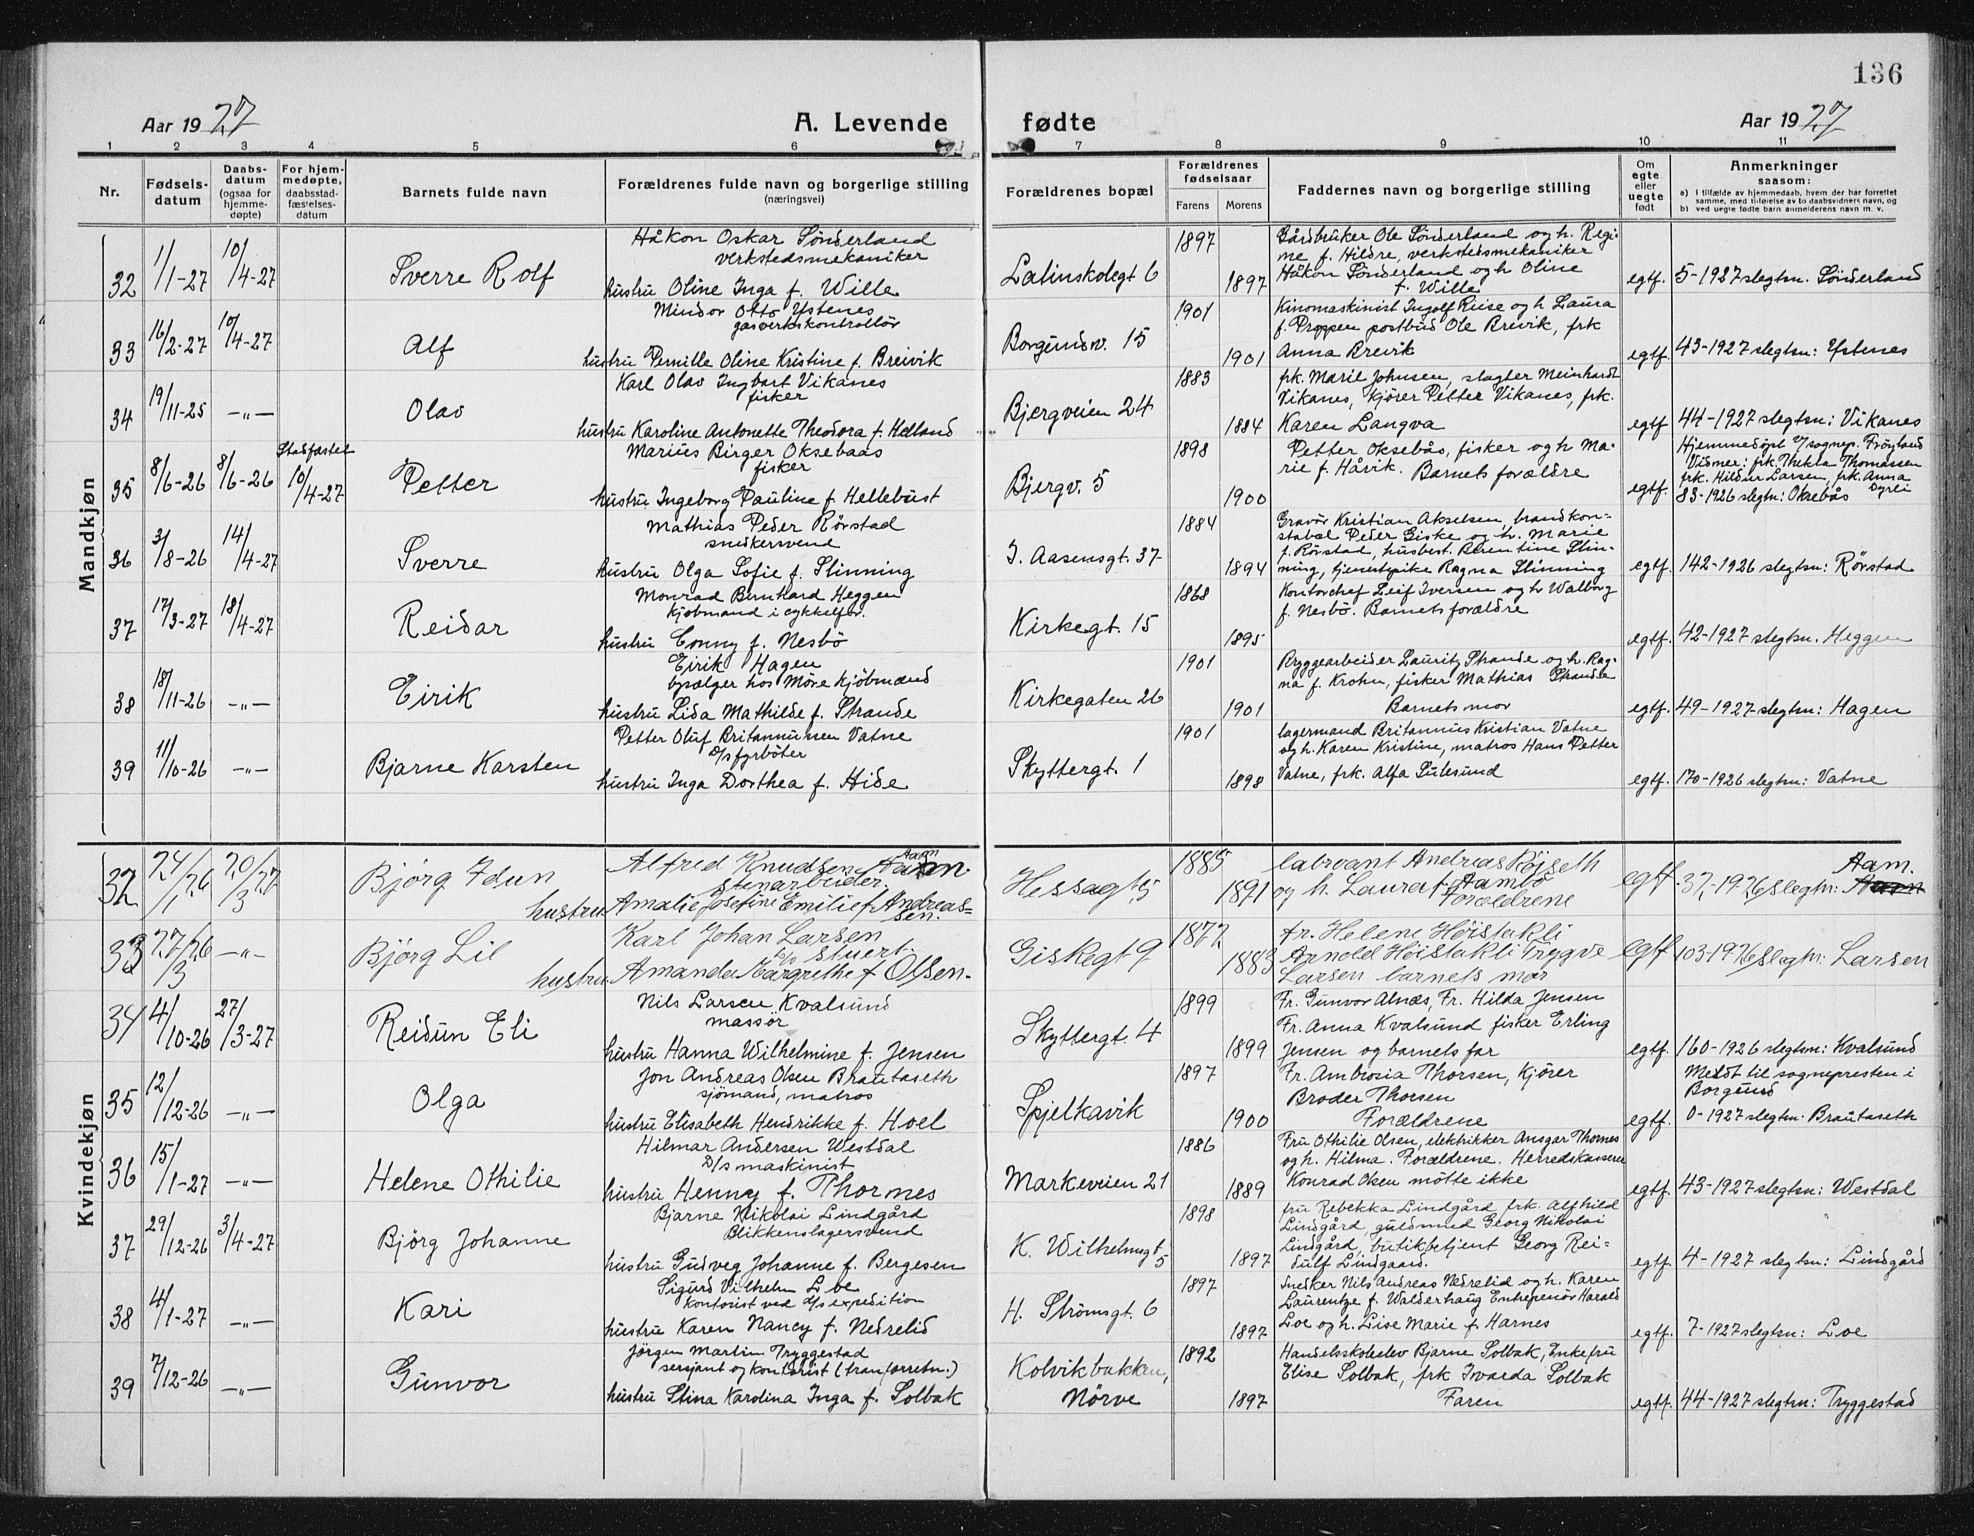 136
Aar 1927
A. Levende fødte
Aar 1927
1 2 3 4 5 6 7 8 9 10 11
Nr.
Fødsels-
datum
Daabs-
datum
(ogsaa for
hjemme-
døpte)
For hjem-
medøpte,
daabsstad-
fæstelses-
datum
Barnets fulde navn
Forældrenes fulde navn og borgerlige stilling
(næringsvei)
Forældrenes bopæl
Forældrenes
fødselsaar
Farens Morens
Faddernes navn og borgerlige stilling
Om
egte
eller
uegte
født
Anmerkninger
saasom:
a) I tilfælde av hjemmedaab, hvem der har forrettet
samme, med tilføielse av to daabsvidners navn, og
b) ved uegte fødte barn anmelderens navn m. v.
Mandkjøn
32 1/1-27 10/4-27 Sverre Rolf
Håkon Oskar Sönderland
verkstedsmekaniker
hustru Oline Inga f. Wille
Latinskolegt 6 1897 1897
Gårdbruker Ole Sönderland og h. Regi-
ne f. Hildre, verkstedsmekaniker
Håkon Sönderland og h Oline
f. Wille
egtf. 5-1927 slegtsn. Sönderland
33 16/2-27 10/4-27 Alf
Mindor Otto Ystenes
gasverkskontrollör
hustru Pernille Oline Kristine f. Breivik
Borgundv. 15 1901 1901
Kinomaskinist Ingolf Riise og h Laura
f. Proppen postbud Ole Brevik, frk
Anna Brevik
egtf. 43-1927 slegtsn: Ystenes
34 19/11-25 -"- Olav
Karl Olav Ingbart Vikanes
fisker
hustru Karoline Antonette Theodora f. Helland
Bjergveien 24 1883 1884
frk. Marie Johnsen, slagter Meinhardt
Vikanes, kjörer Petter Vikanes, frk.
Karen Langva
egtf 44-1927 slegtsn: Vikanes
35 8/6-26 8/6-26 Stadfæstet 10/4-27 Petter
Marius Birger Oksebaas
fisker
hustru Ingeborg Pauline f. Hellebust
Bjergv. 5 1898 1900
Petter Oksebås, fisker og h Ma-
rie f. Håvik. Barnets forældre
egtf. Hjemmedöpt v/ sognep. Fröyland
Vidner: frk. Thekla Thomassen
frk. Hildur Larsen, frk. Anna
83-1926 slegtsn: Oksebås Dyrli
36 3/8-26 14/4-27 Sverre
Mathias Peder Rörstad
snedkersvend
hustru Olga Sofie f. Slinning
I. Aasensgt. 37 1884 1894
Gravör Kristian Akselsen, brandkon-
stabel Peder Giske og h. Marie
f. Rörstad, husbest. Berentine Slin-
ning, tjenestepike Ragna Slinning
egtf. 142-1926 slegtsn: Rörstad
37 17/3-27 18/4-27 Reidar
Monrad Bernhard Heggen
kjöbmand i cykkelfor.
hustru Conny f. Nesbö
Kirkegt. 15 1868 1895
Kontorchef Leif Iversen og h Walborg
f. Nesbö. Barnets forældre
egtf. 42-1927 slegtsn. Heggen
38 18/11-26 -"- Eirik
Eirik Hagen
bysælger hos Möre Kjöbmænd
hustru Lida Mathilde f. Strande
Kirkegaten 26 1901 1901
Bryggearbeider Lauritz Strande og h. Rag-
na f. Krohn, fisker Mathias Strande
Barnets mor
egtf. 49-1927 slegtsn: Hagen
39 11/10-26 -"- Bjarne Karsten
Petter Oluf Britannusen Vatne
D/s fyrböter
hustru Inga Dorthea f. Hide
Skyttergt. 1 1901 1898
lagermand Britannus Kristian Vatne
og h. Karen Kristine, matros Hans Petter
Vatne, frk. Alfa Sulesund
egtf. 170-1926 slegtsn: Vatne
Kvindekjøn
32 24/1 26 20/3 27 Bjørg Idun
Alfred Knudsen Aam
stenarbeider
hustru Amalie Josefine Emilie f Andreas=
sen.
Hessagt 5 1885 1891
Andreas Röjseth
og h. Laura f. Aambö
Forældrene
egtf. 37-1926 slegtsn: Aam.
33 27/3 26 -"- Bjørg Lil
Karl Johan Larsen
D/s stuert
hustru Amanda Margrethe f Olsen-
Giskegt 9 1877 1883
fr. Helene Höistakli
Arnold Höistakli Trygve
Larsen barnets mor
egtf 103-1926 slegtsn: Larsen
34 4/10-26 27/3-27 Reidun Eli
Nils Larsen Kvalsund
massör
hustru Hanna Wilhelmine f. Jensen
Skyttergt. 4 1899 1899
Fr. Gunvor Alnæs, Fr. Hilda Jensen
Fr. Anna Kvalsund fisker Erling
Jensen og barnets far
egtf. 160-1926 slegtsn: Kvalsund
35 12/12-26 -"- Olga
Jon Andreas Olsen Brautaseth
sjömand, matros
hustru Elisabeth Hendrikke f. Hoel
Spjelkavik 1897 1900
Fr. Ambrosia Thorsen, Kjörer
Broder Thorsen
Forældrene
egtf. Meldt til sognepresten i
Borgund
0-1927 slegtsn. Brautaseth
36 15/1-27 -"- Helene Othilie
Hilmar Andersen Westdal
D/s maskinist
hustru Henny f. Thormes
Markeveien 21 1886 1889
Fru Othilie Olsen, elektrikker Ansgar Thormes
og h. Hilma. Forældrene. Herredskasserer
Konrad Olsen mötte ikke
egtf. 43-1927 slegtsn: Westdal
37 29/12-26 3/4-27 Bjørg Johanne
Bjarne Nikolai Lindgård
Blikkenslagersvend
hustru Gudveg Johanne f. Bergesen
K. Wilhelmsgt. 5 1898 1897
fru Rebekka Lindgård frk. Alfhild
Lindgård, guldsmed Georg Nikolai
Lindgård, butikbetjent Georg Rei=
dulf Lindgaard.
egtf. 4-1927 slegtsn: Lindgård
38 4/1-27 -"- Kari
Sigurd Vilhelm Loe
Kontorist ved d/s expedition
hustru Karen Nancy f. Nedrelid
H. Strömsgt. 6 1897 1897
Snedker Nils Andreas Nedrelid og h. Karen
Laurentze f. Walderhaug Entrepenör Harald
Loe og h. Lise Marie f. Harnes
egtf. 7-1927 slegtsn: Loe
39 7/12-26 -"- Gunvor
Jörgen Martin Tryggestad
sersjant og kontorist (tranforretn.)
hustru Stina Karolina Inga f. Solbak
Kolvikbakken,
Nörve 1892 1897
Handelsskoleelev Bjarne Solbak, Enkefru
Elise Solbak, frk Ivarda Solbak
Faren
egtf. 44-1927 slegtsn: Tryggestad